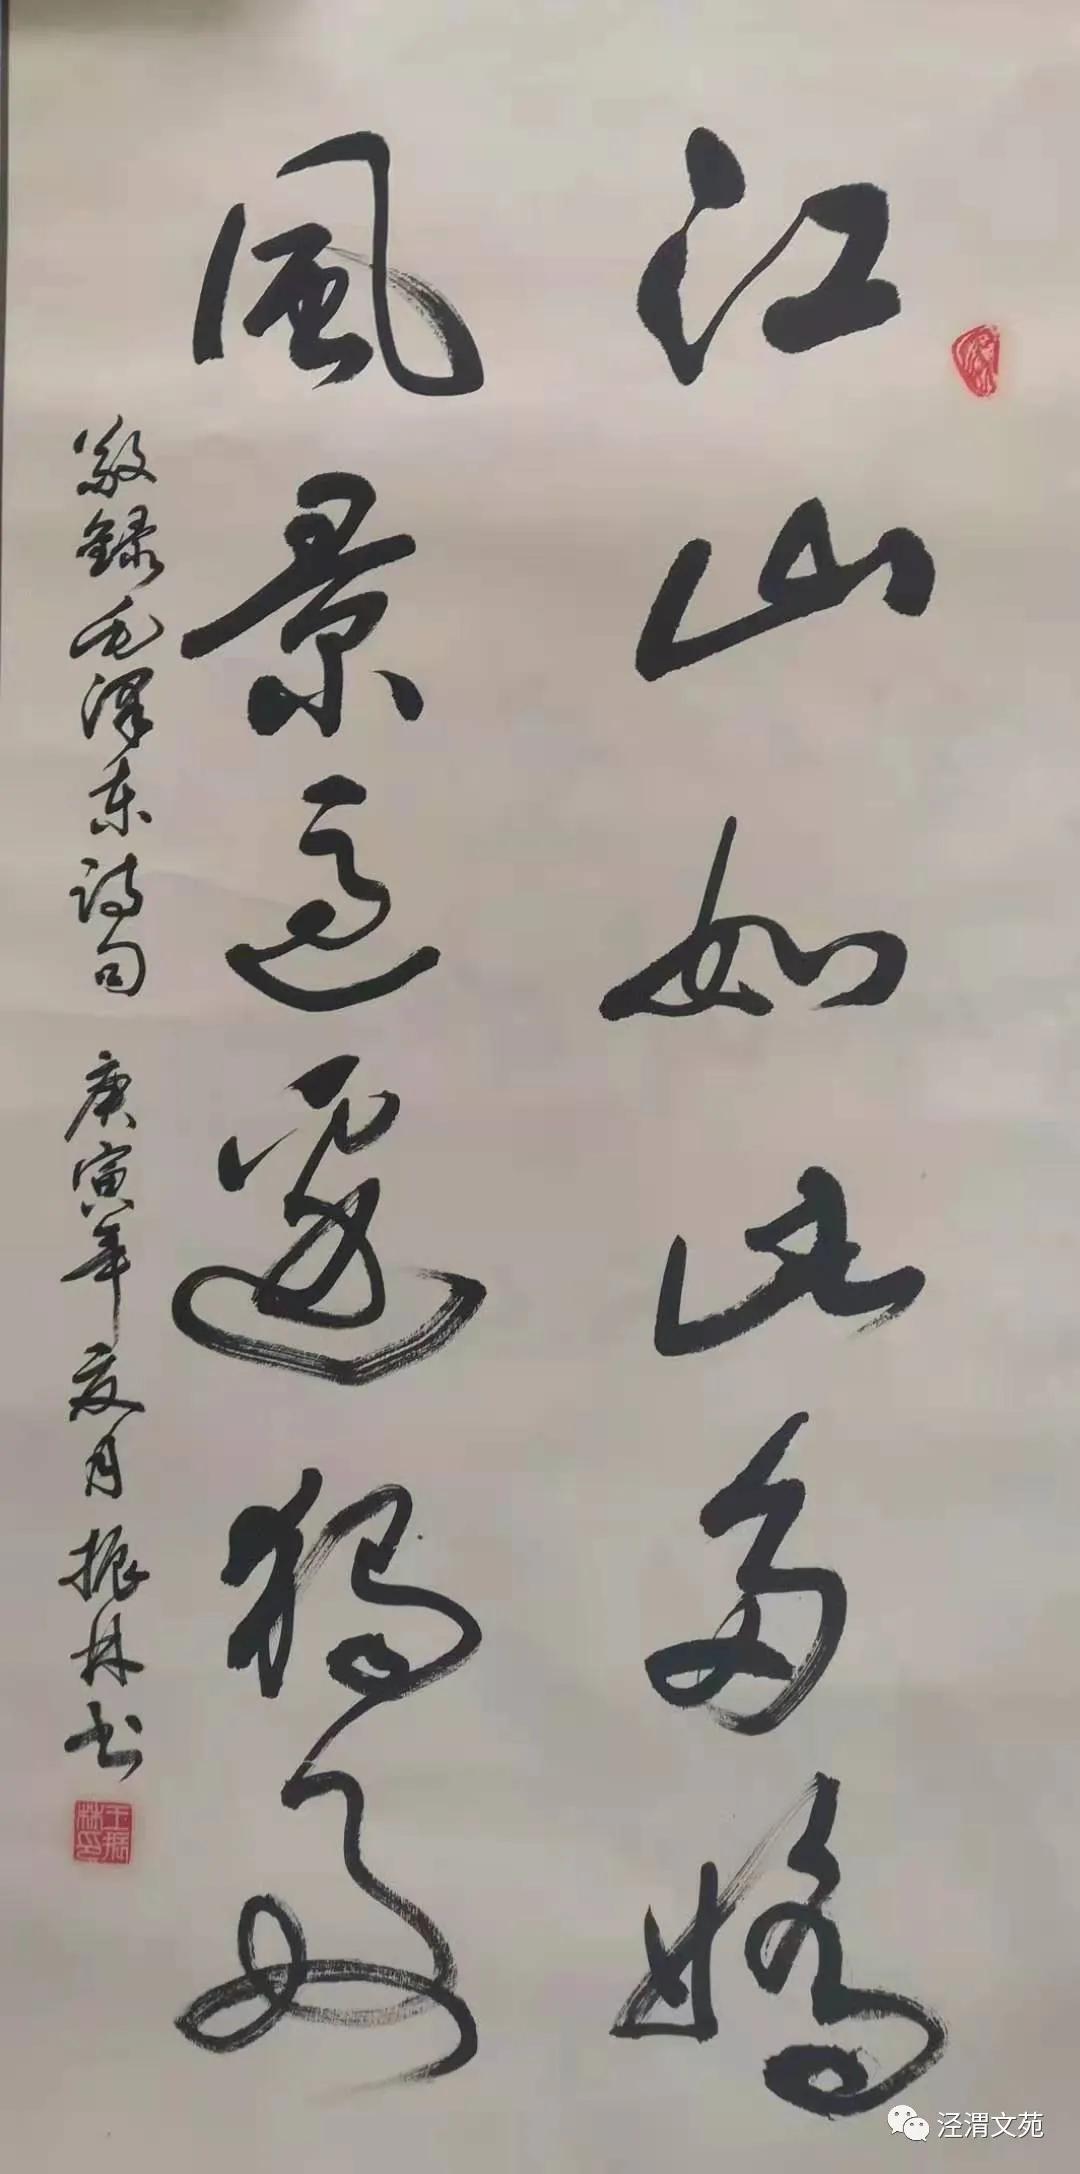 江山如此多嬌
風景這邊獨好
敬録毛澤东诗句 庚寅年夏月振林书
王振林印
泾渭文苑